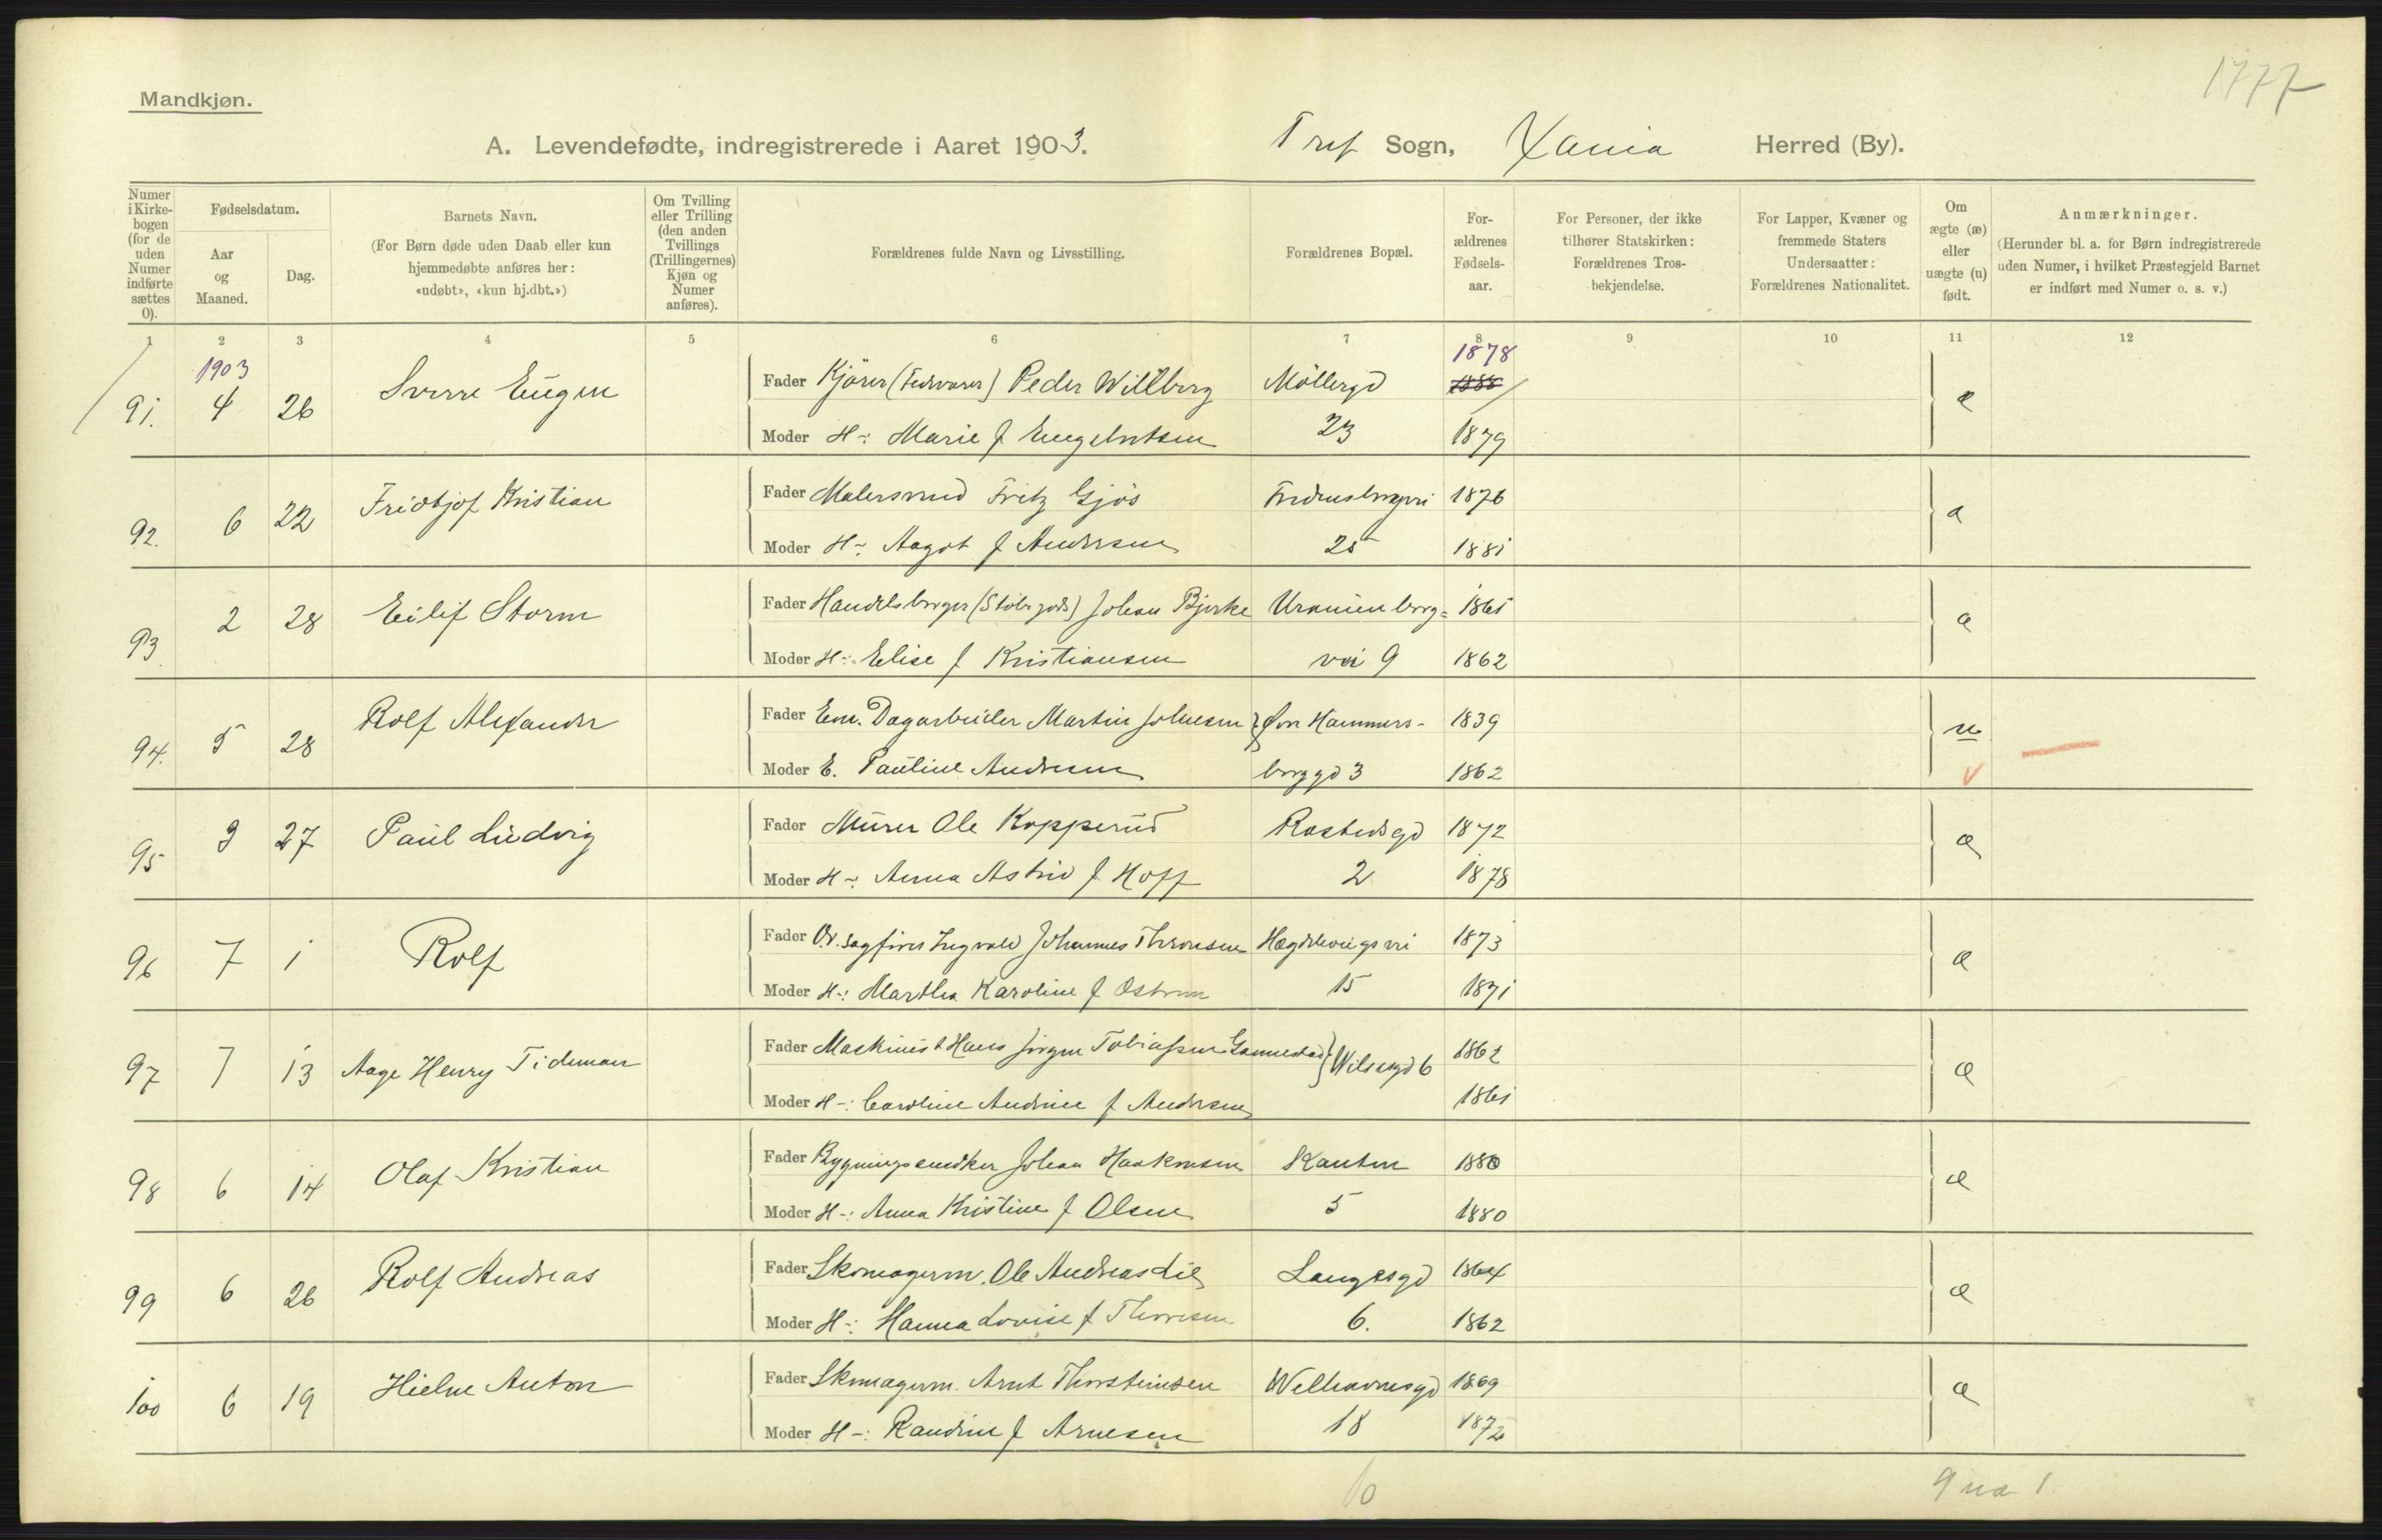 1777
Mandkjøn.
A. Levendefødte, indregistrerede i Aaret 1903. Tref Sogn, Xania Herred (By).
Numer i Kirkebogen (for de uden Numer indførte sættes 0).
Fødselsdatum.
Aar og Maaned.
Dag.
Barnets Navn.
(For Børn døde uden Daab eller kun hjemmedøbte anføres her: «udøbt», «kun hj.dbt.»)
Om Tvilling eller Trilling (den anden Tvillings (Trillingernes) Kjøn og Numer anføres).
Forældrenes fulde Navn og Livsstilling.
Forældrenes Bopæl.
Forældrenes Fødselsaar.
For Personer, der ikke tilhører Statskirken: Forældrenes Trosbekjendelse.
For Lapper, Kvæner og fremmede Staters Undersaatter: Forældrenes Nationalitet.
Om ægte (æ) eller uægte (u) født.
Anmærkninger.
(Herunder bl. a. for Børn indregistrerede uden Numer, i hvilket Præstegjeld Barnet er indført med Numer o. s. v.)
1 2 3 4 5 6 7 8 9 10 11 12
1903 1878
91. 4 26 Sverre Eugen Fader Kjører (Fedevarer) Peder Willberg Møllergd 1888 æ
Moder H-: Marie f Engebretsen 23 1879
92. 6 22 Fridtjof Kristian Fader Malersvend Fritz Gjøs Fredensborgvei 1876 æ
Moder H-: Aagot f Andersen 25 1881
93 2 28 Eilif Storm Fader Handelsborger (Støbegods) Johan Bjerke Uranienborg= 1861 æ
Moder H-: Elise f Kristiansen vei 9 1862
94. 5 28 Rolf Alexander Fader Em. Dagarbeider Martin Johnsen Øvre Hammers- 1839 u
Moder E. Pauline Andresen borggd 3 1862
95 3 27 Paul Ludvig Fader Murer Ole Kopperud Rostedsgd 1872 æ
Moder H-: Anna Astrid f Hoff 2 1878
96 7 1 Rolf Fader O.r.sagfører Ingvald Johannes Thronsen Hægdehougsvei 1873 æ
Moder H-: Marthea Karoline f Østrem 15 1871
97 7 13 Aage Henry Tideman Fader Maskinist Hans Jørgen Tobiassen Gannestad Wilsesgd 6 1862 æ
Moder H-: Caroline Andrine f Andersen 1861
98 6 14 Olaf Kristian Fader Bygningssnedker Johan Haakonsen Kanten 1880 æ
Moder H-: Anna Kristine f Olsen 5 1880
99 6 26 Rolf Andreas Fader Skomagerm. Ole Andreas Lie Langesgd 1864 æ
Moder H-: Hanna Lovise f Thoresen 6. 1862
100 6 19 Hielm Anton Fader Skomagerm. Arnt Thorsteinsen Welhavensgd 1869 æ
Moder H-: Randine f Arnesen 18 1872
10 9 u 1